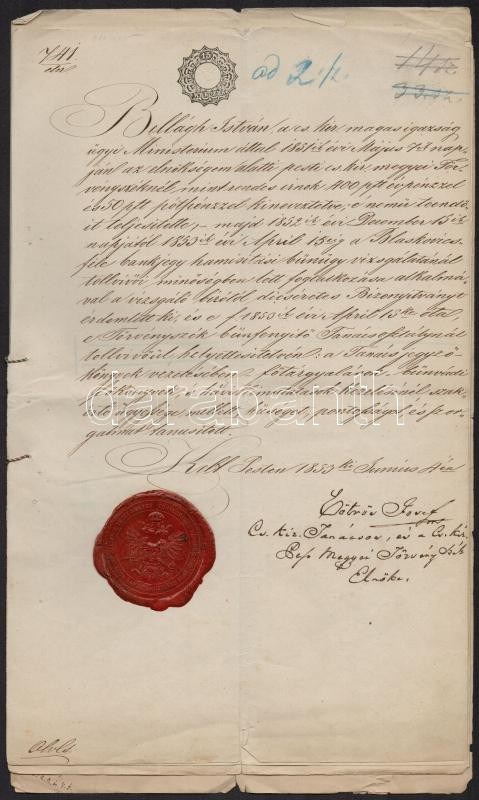 741
eln.
ad 2 /.
Billágh István, a cs. kir. magas igazság
ügyi Ministerium által 1851ik évi Május 7én nap-
ján az elnökségem alatti pesti cs. kir. megyei Tör-
vényszéknél, mint rendes irnok 400 pft évpénzzel
és 50 pft pótpénzzel kineveztetve, e nemű teendő-
it teljesitette, – majd 1852ik évi December 15ik
napjától 1853ik évi April 15ig a Blaskovics-
féle bankjegy hamisitási bünügy vizsgálatánál
tollvivői minőségben lett foglalkozása alkalmá-
val a vizsgáló birótól dicséretes Bizonyitványt
érdemlett ki, és e f. 1853ik évi April 15ke óta,
e Törvényszék bünfenyitő Tanácsosztálynál
tollvivőül helyettesitetvén, a Tanács jegyző-
könyvek vezetésében, főtárgyalási
ügyesség mellett, hűséget, pontosságot, és szor-
galmat tanusitott.
Kelt Pesten 1853ik Junius 4én
Eötvös József
Cs. Kir. Tanácsos, és a Cs. Kir.
Pest Megyei Törvényszék
Elnöke.
darabanth